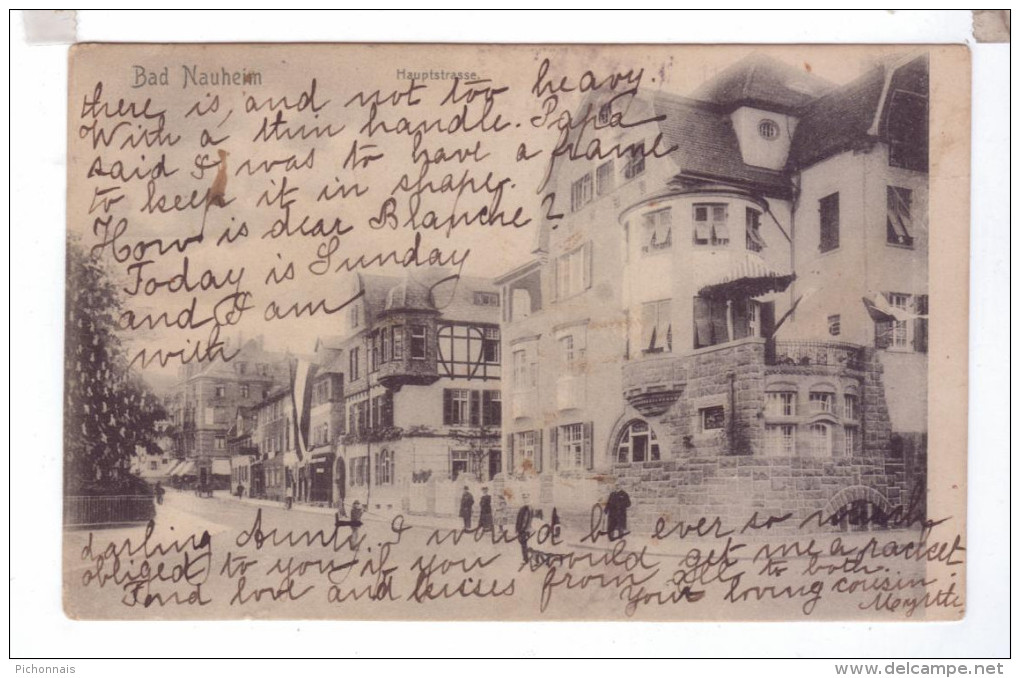 Bad Nauheim
Hauptstrasse.
there is, and not too heavy.
With a thin handle. Papa
said I was to have a frame
to keep it in shape.
How is dear Blanche?
Today is Sunday
and I am
with
darling Aunt. I would be ever so much
obliged to you if you would get me a racket
Fond love and kisses from all to both.
Your loving cousin
Myrtle
Pichonnais
delcampe.net